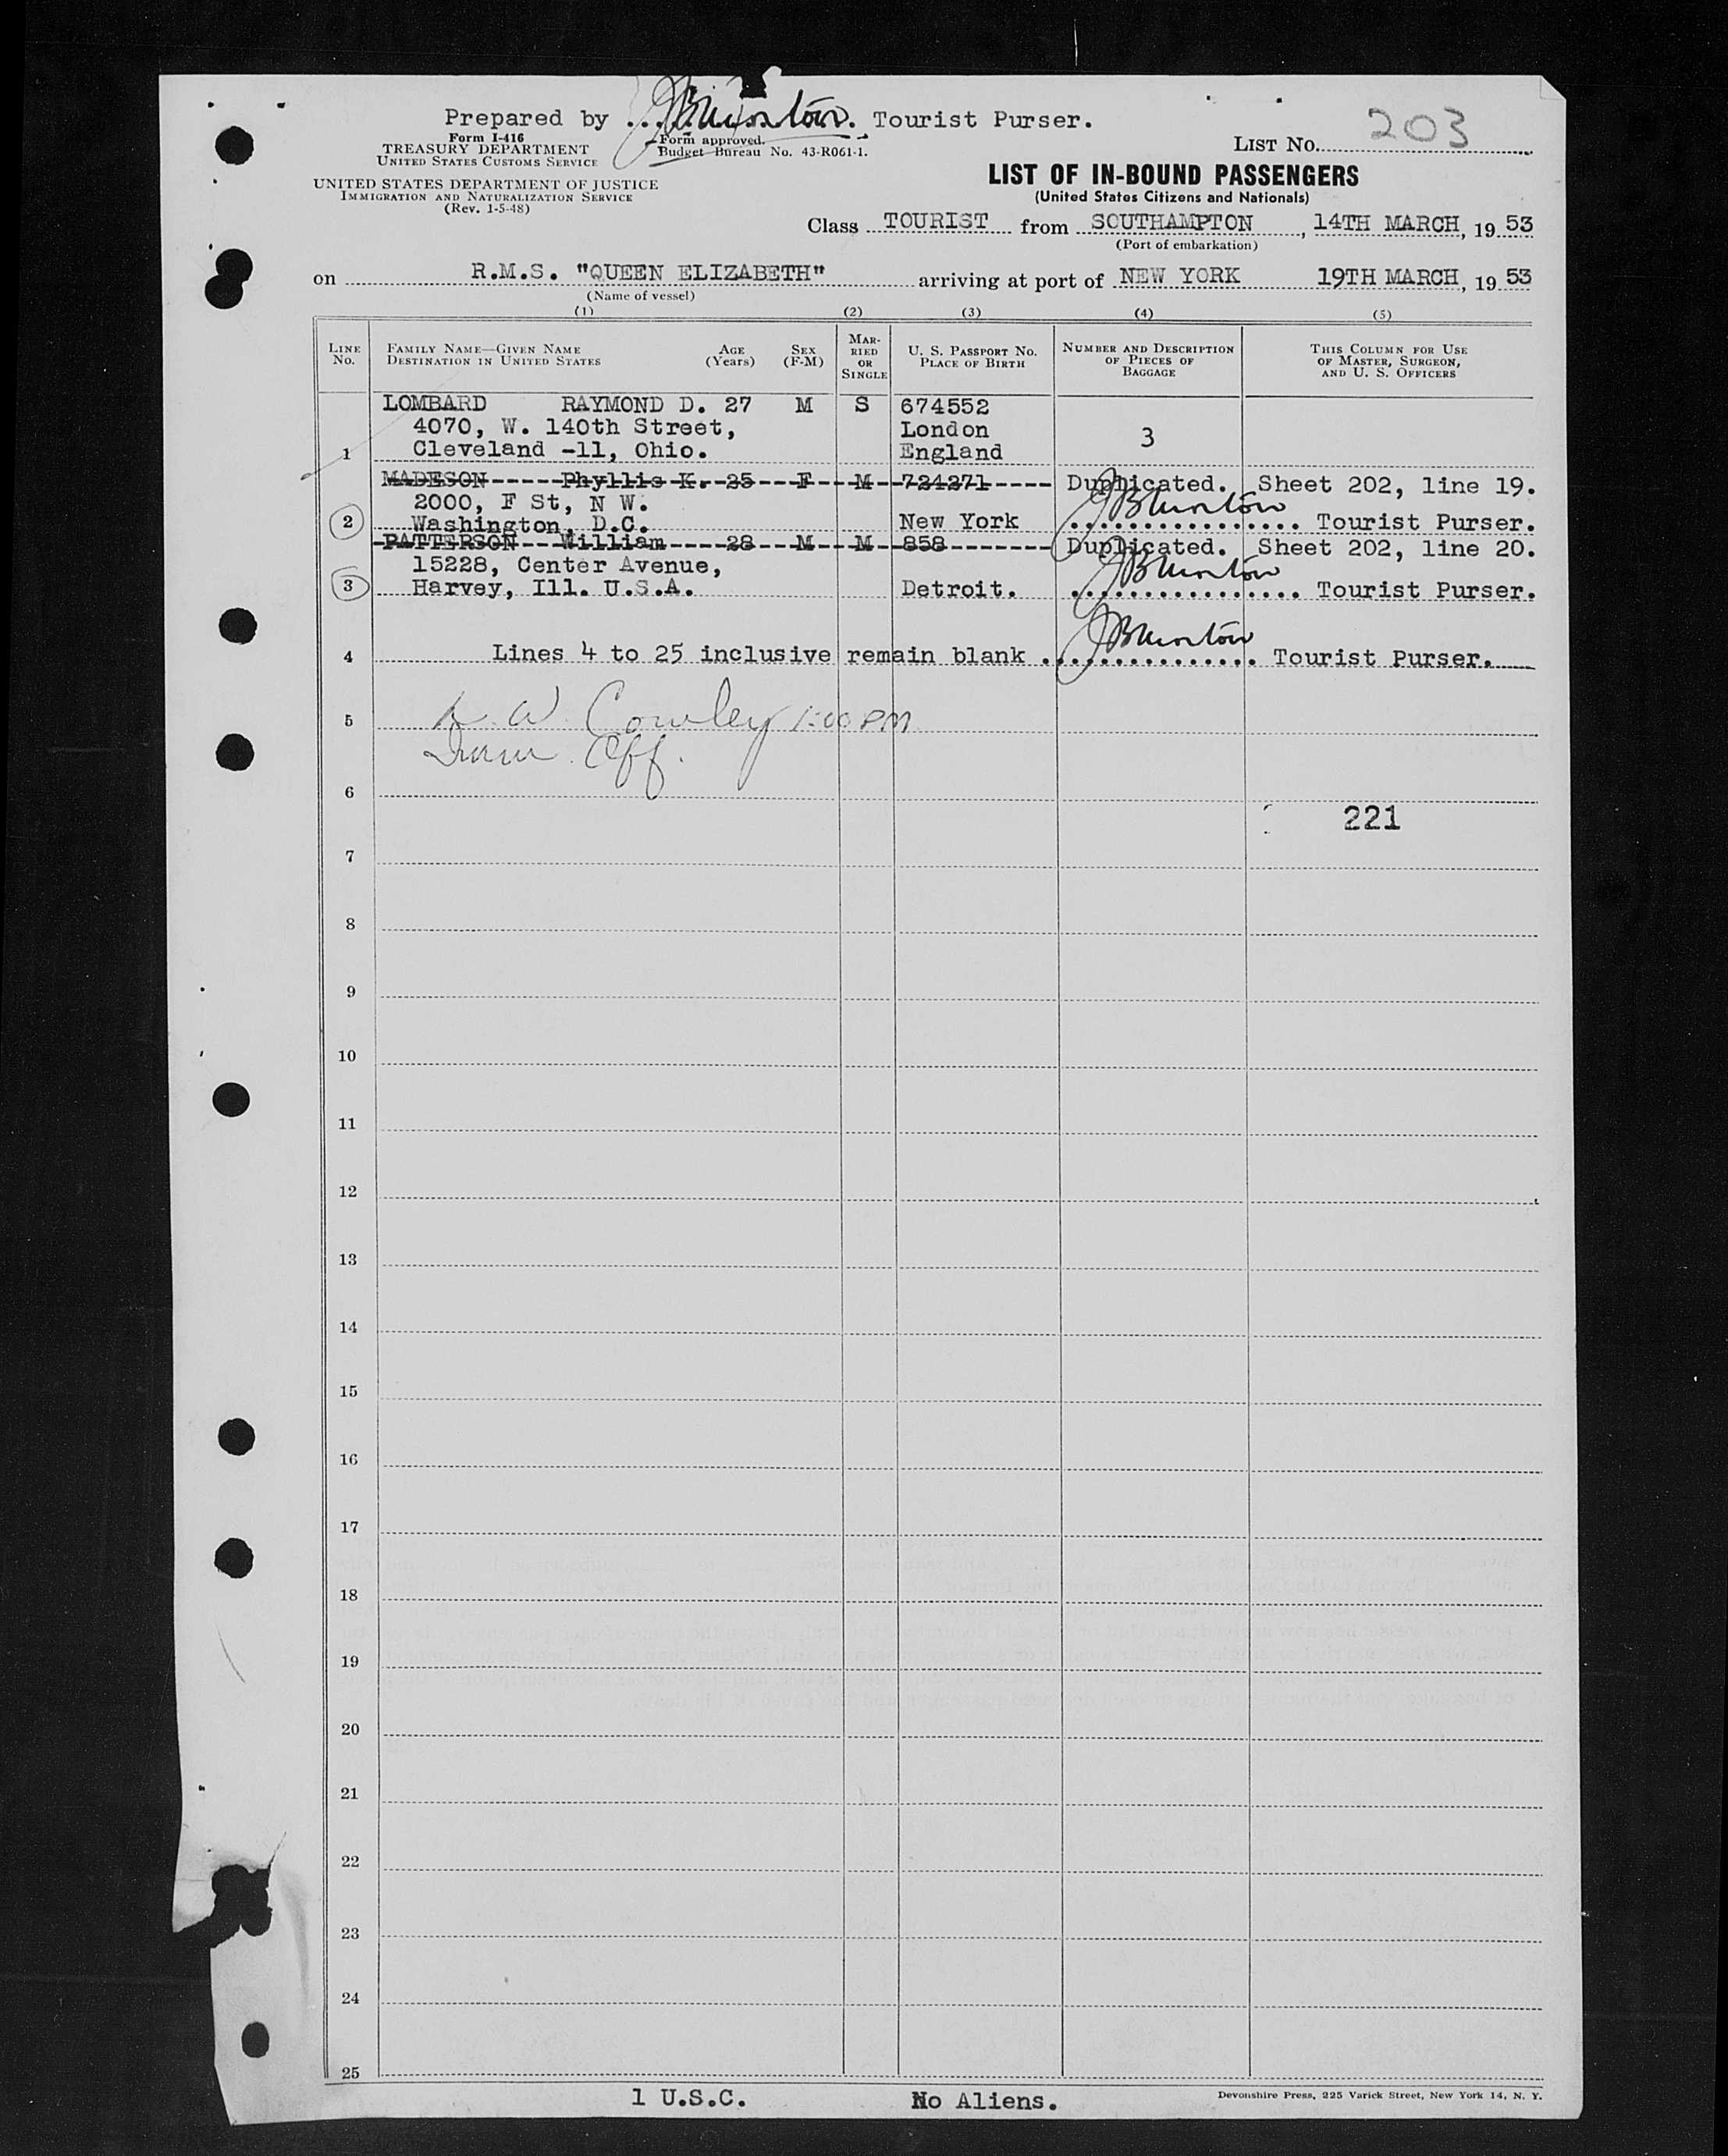 Prepared by ........ Tourist Purser.
Form I-416
TREASURY DEPARTMENT
UNITED STATES CUSTOMS SERVICE
Form approved.
Budget Bureau No. 43-R061-1.
LIST NO. 203
UNITED STATES DEPARTMENT OF JUSTICE
IMMIGRATION AND NATURALIZATION SERVICE
(Rev. 1-5-48)
LIST OF IN-BOUND PASSENGERS
(United States Citizens and Nationals)
Class TOURIST from SOUTHAMPTON, 14TH MARCH, 19 53
(Port of embarkation)
on R.M.S. "QUEEN ELIZABETH" arriving at port of NEW YORK 19TH MARCH, 19 53
(Name of vessel)
(1) (2) (3) (4) (5)
LINE NO.
FAMILY NAME—GIVEN NAME
DESTINATION IN UNITED STATES
AGE (Years)
SEX (F-M)
MARRIED OR SINGLE
U. S. PASSPORT NO.
PLACE OF BIRTH
NUMBER AND DESCRIPTION OF PIECES OF BAGGAGE
THIS COLUMN FOR USE OF MASTER, SURGEON, AND U. S. OFFICERS
LOMBARD RAYMOND D. 27 M S 674552
4070, W. 140th Street, London 3
1 Cleveland -11, Ohio. England
MADESON Phyllis K. 25 F M 724271 Duplicated. Sheet 202, line 19.
2000, F St, N W.
2 Washington, D.C. New York ................ Tourist Purser.
PATTERSON William 28 M M 858 Duplicated. Sheet 202, line 20.
15228, Center Avenue,
3 Harvey, Ill. U.S.A. Detroit. ................ Tourist Purser.
4 Lines 4 to 25 inclusive remain blank ............... Tourist Purser.
5 Cowley 1:00 PM
Imm Off.
6
221
7
8
9
10
11
12
13
14
15
16
17
18
19
20
21
22
23
24
25
1 U.S.C. No Aliens.
Devonshire Press, 225 Varick Street, New York 14, N. Y.